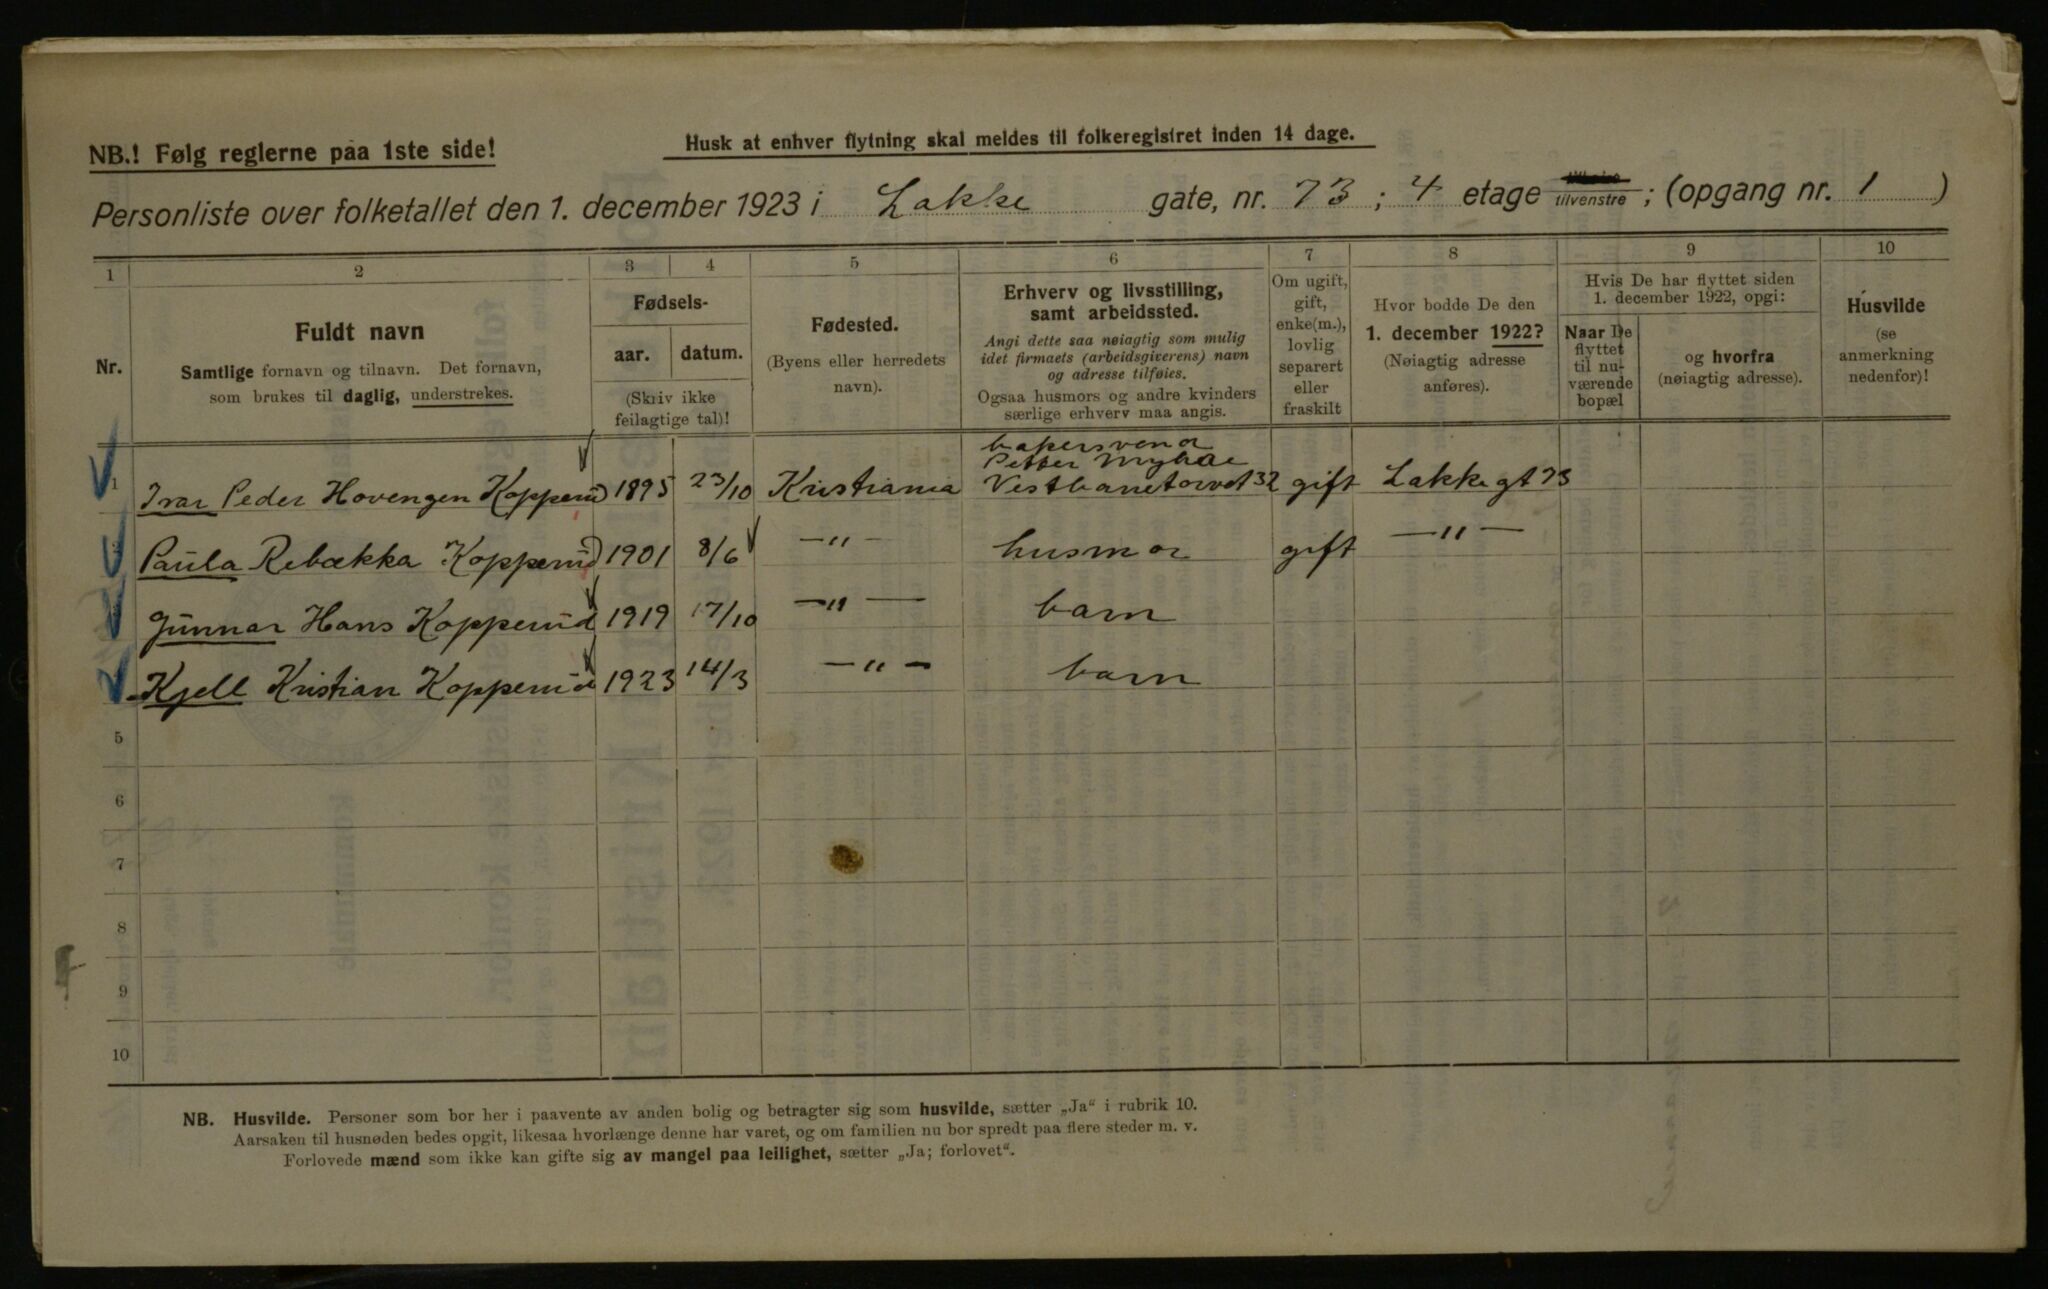 NB.! Følg reglerne paa 1ste side!
Husk at enhver flytning skal meldes til folkeregistret inden 14 dage.
Personliste over folketallet den 1. december 1923 i Lakke gate, nr. 73; 4 etage tilvenstre; (opgang nr. 1)
1 2 3 4 5 6 7 8 9 10
Nr.
Fuldt navn
Samtlige fornavn og tilnavn. Det fornavn,
som brukes til daglig, understrekes.
Fødsels-
aar. datum.
(Skriv ikke
feilagtige tal)!
Fødested.
(Byens eller herredets
navn).
Erhverv og livsstilling,
samt arbeidssted.
Angi dette saa nøiagtig som mulig
idet firmaets (arbeidsgiverens) navn
og adresse tilføies.
Ogsaa husmors og andre kvinders
særlige erhverv maa angis.
Om ugift,
gift,
enke(m.),
lovlig
separert
eller
fraskilt
Hvor bodde De den
1. december 1922?
(Nøiagtig adresse
anføres).
Hvis De har flyttet siden
1. december 1922, opgi:
Naar De
flyttet
til nu-
værende
bopæl
og hvorfra
(nøiagtig adresse).
Husvilde
(se
anmerkning
nedenfor)!
bakersvend
Petter Myhre
1 Ivar Peder Hovengen Kopperud 1895 23/10 Kristiania Vestbanetorvet 32 gift Lakke gt 73
2 Paula Rebækka Kopperud 1901 8/6 —"— husmor gift —"—
3 Gunnar Hans Kopperud 1919 17/10 —"— barn
4 Kjell Kristian Kopperud 1923 14/3 —"— barn
5
6
7
8
9
10
NB. Husvilde. Personer som bor her i paavente av anden bolig og betragter sig som husvilde, sætter „Ja" i rubrik 10.
Aarsaken til husnøden bedes opgit, likesaa hvorlænge denne har varet, og om familien nu bor spredt paa flere steder m. v.
Forlovede mænd som ikke kan gifte sig av mangel paa leilighet, sætter „Ja; forlovet".